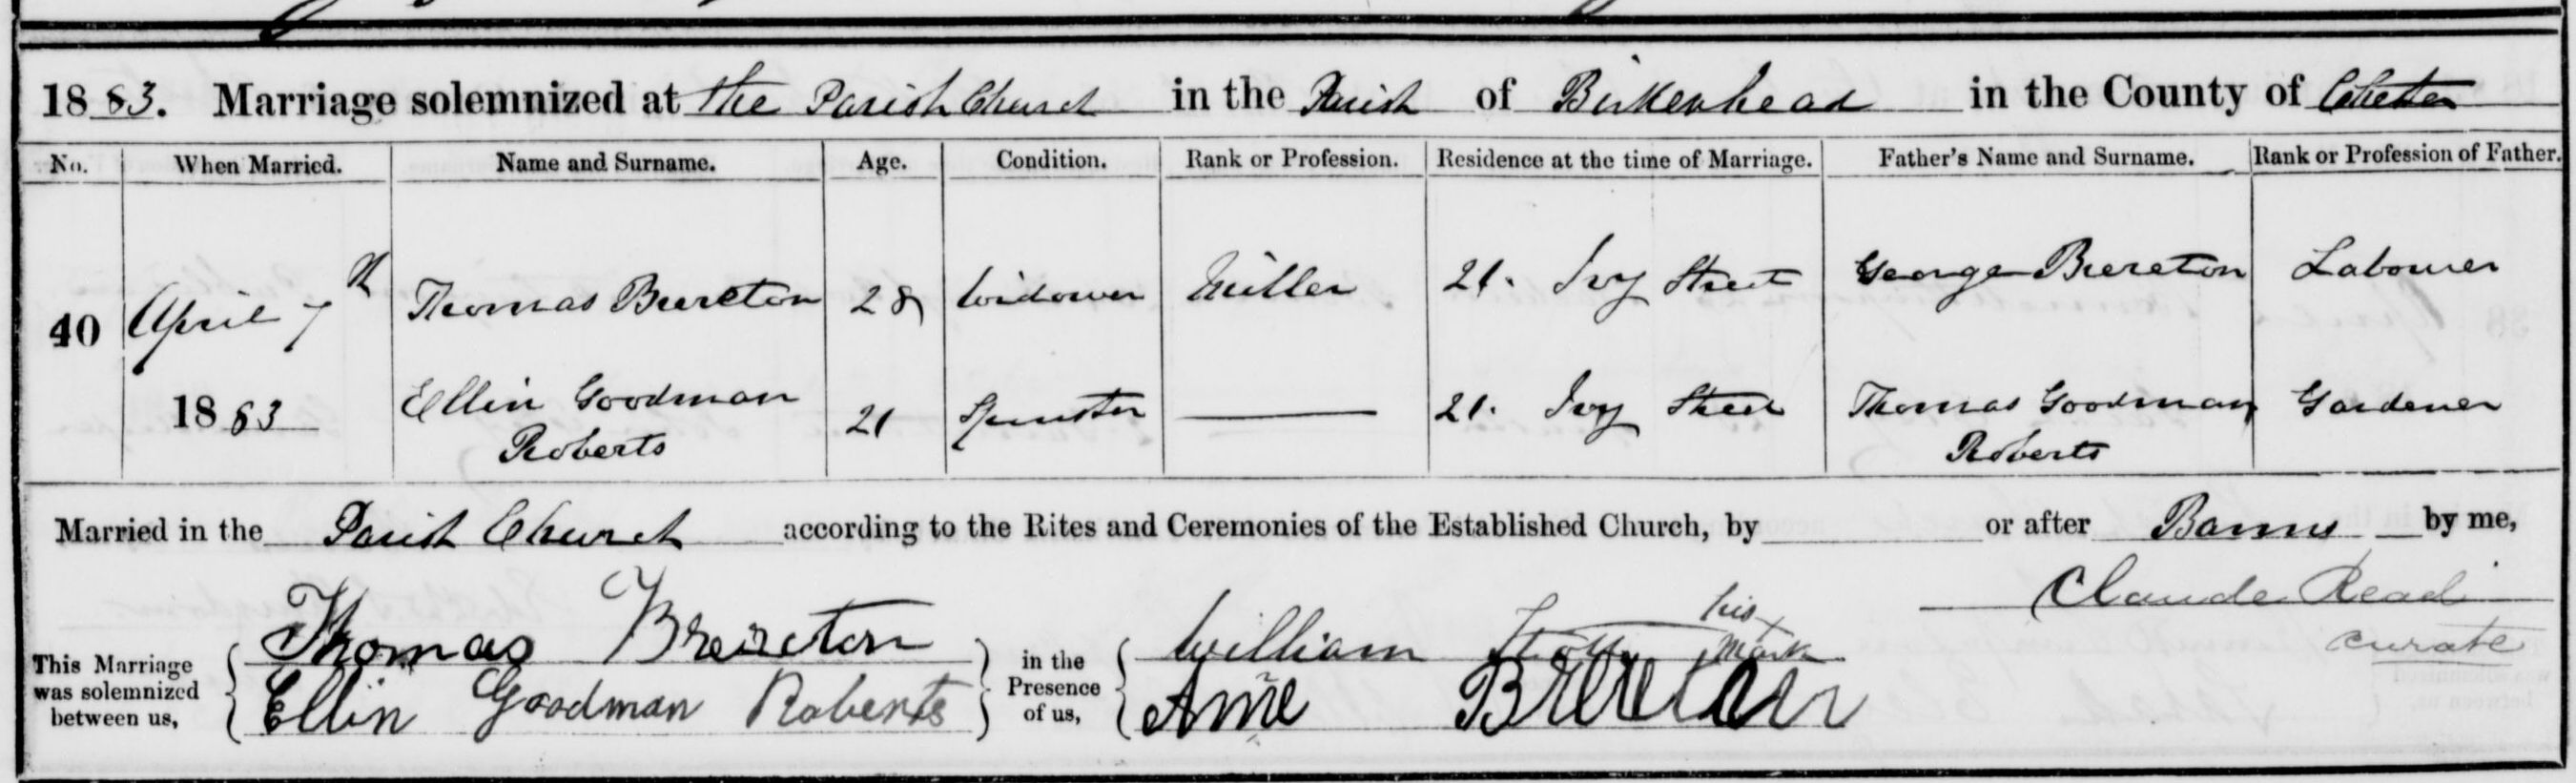 1883. Marriage solemnized at the Parish Church in the Parish of Birkenhead in the County of Chester
No. When Married. Name and Surname. Age. Condition. Rank or Profession. Residence at the time of Marriage. Father's Name and Surname. Rank or Profession of Father.
40 April 7th Thomas Brereton 28 Widower Miller 21. Ivy Street George Brereton Labourer
1883 Ellin Goodman 21 Spinster 21. Ivy Street Thomas Goodman Gardener
Roberts Roberts
Married in the Parish Church according to the Rites and Ceremonies of the Established Church, by or after Banns by me,
Claude Read
curate
This Marriage was solemnized between us, Thomas Brereton in the Presence of us, William his mark
Ellin Goodman Roberts Brereton